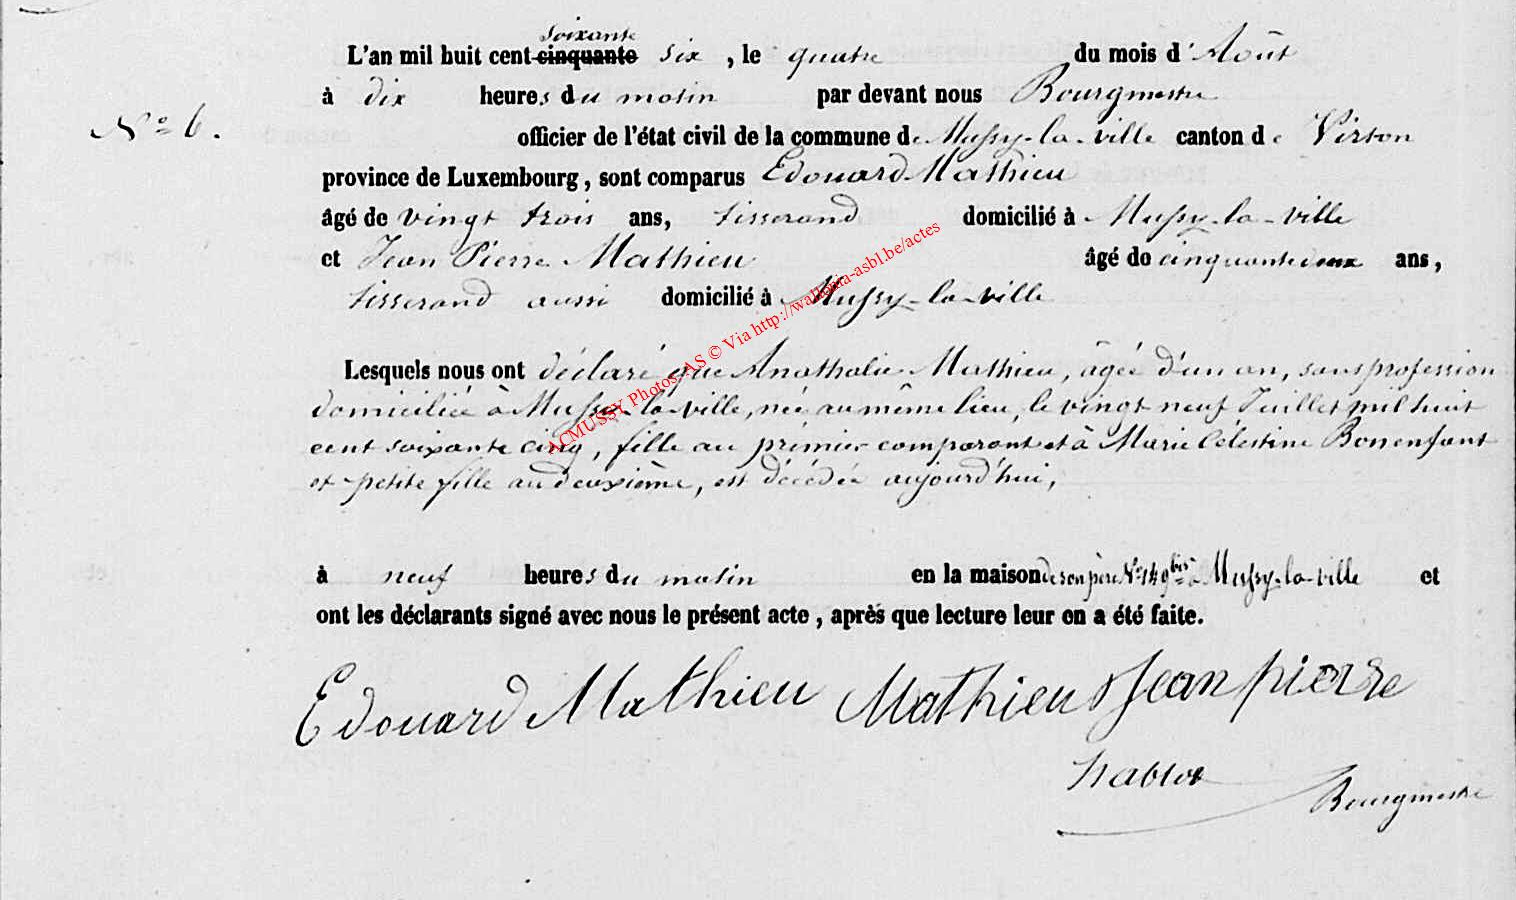 soixante
L'an mil huit cent cinquante six, le quatre du mois d'Août
à dix heures du matin par devant nous Bourgmestre
N° 6. officier de l'état civil de la commune de Mussy-la-ville canton de Virton
province de Luxembourg, sont comparus Edouard Mathieu
âgé de vingt trois ans, tisserand domicilié à Mussy-la-ville
et Jean Pierre Mathieu âgé de cinquante deux ans,
tisserand aussi domicilié à Mussy-la-ville
Lesquels nous ont déclaré que Anathalie Mathieu, âgée d'un an, sans profession
domiciliée à Mussy-la-ville, née au même lieu, le vingt neuf Juillet mil huit
cent soixante cinq, fille au prémier comparant et à Marie Célestine Bonenfant
et petite fille au deuxième, est décédée aujourd'hui,
à neuf heures du matin en la maison de son père N° 149 bis à Mussy-la-ville et
ont les déclarants signé avec nous le présent acte, après que lecture leur en a été faite.
Edouard Mathieu Mathieu Jean pierre
Bourgmestre
ACMUSSY Photos AS © Via http://wallonia-asbl.be/actes